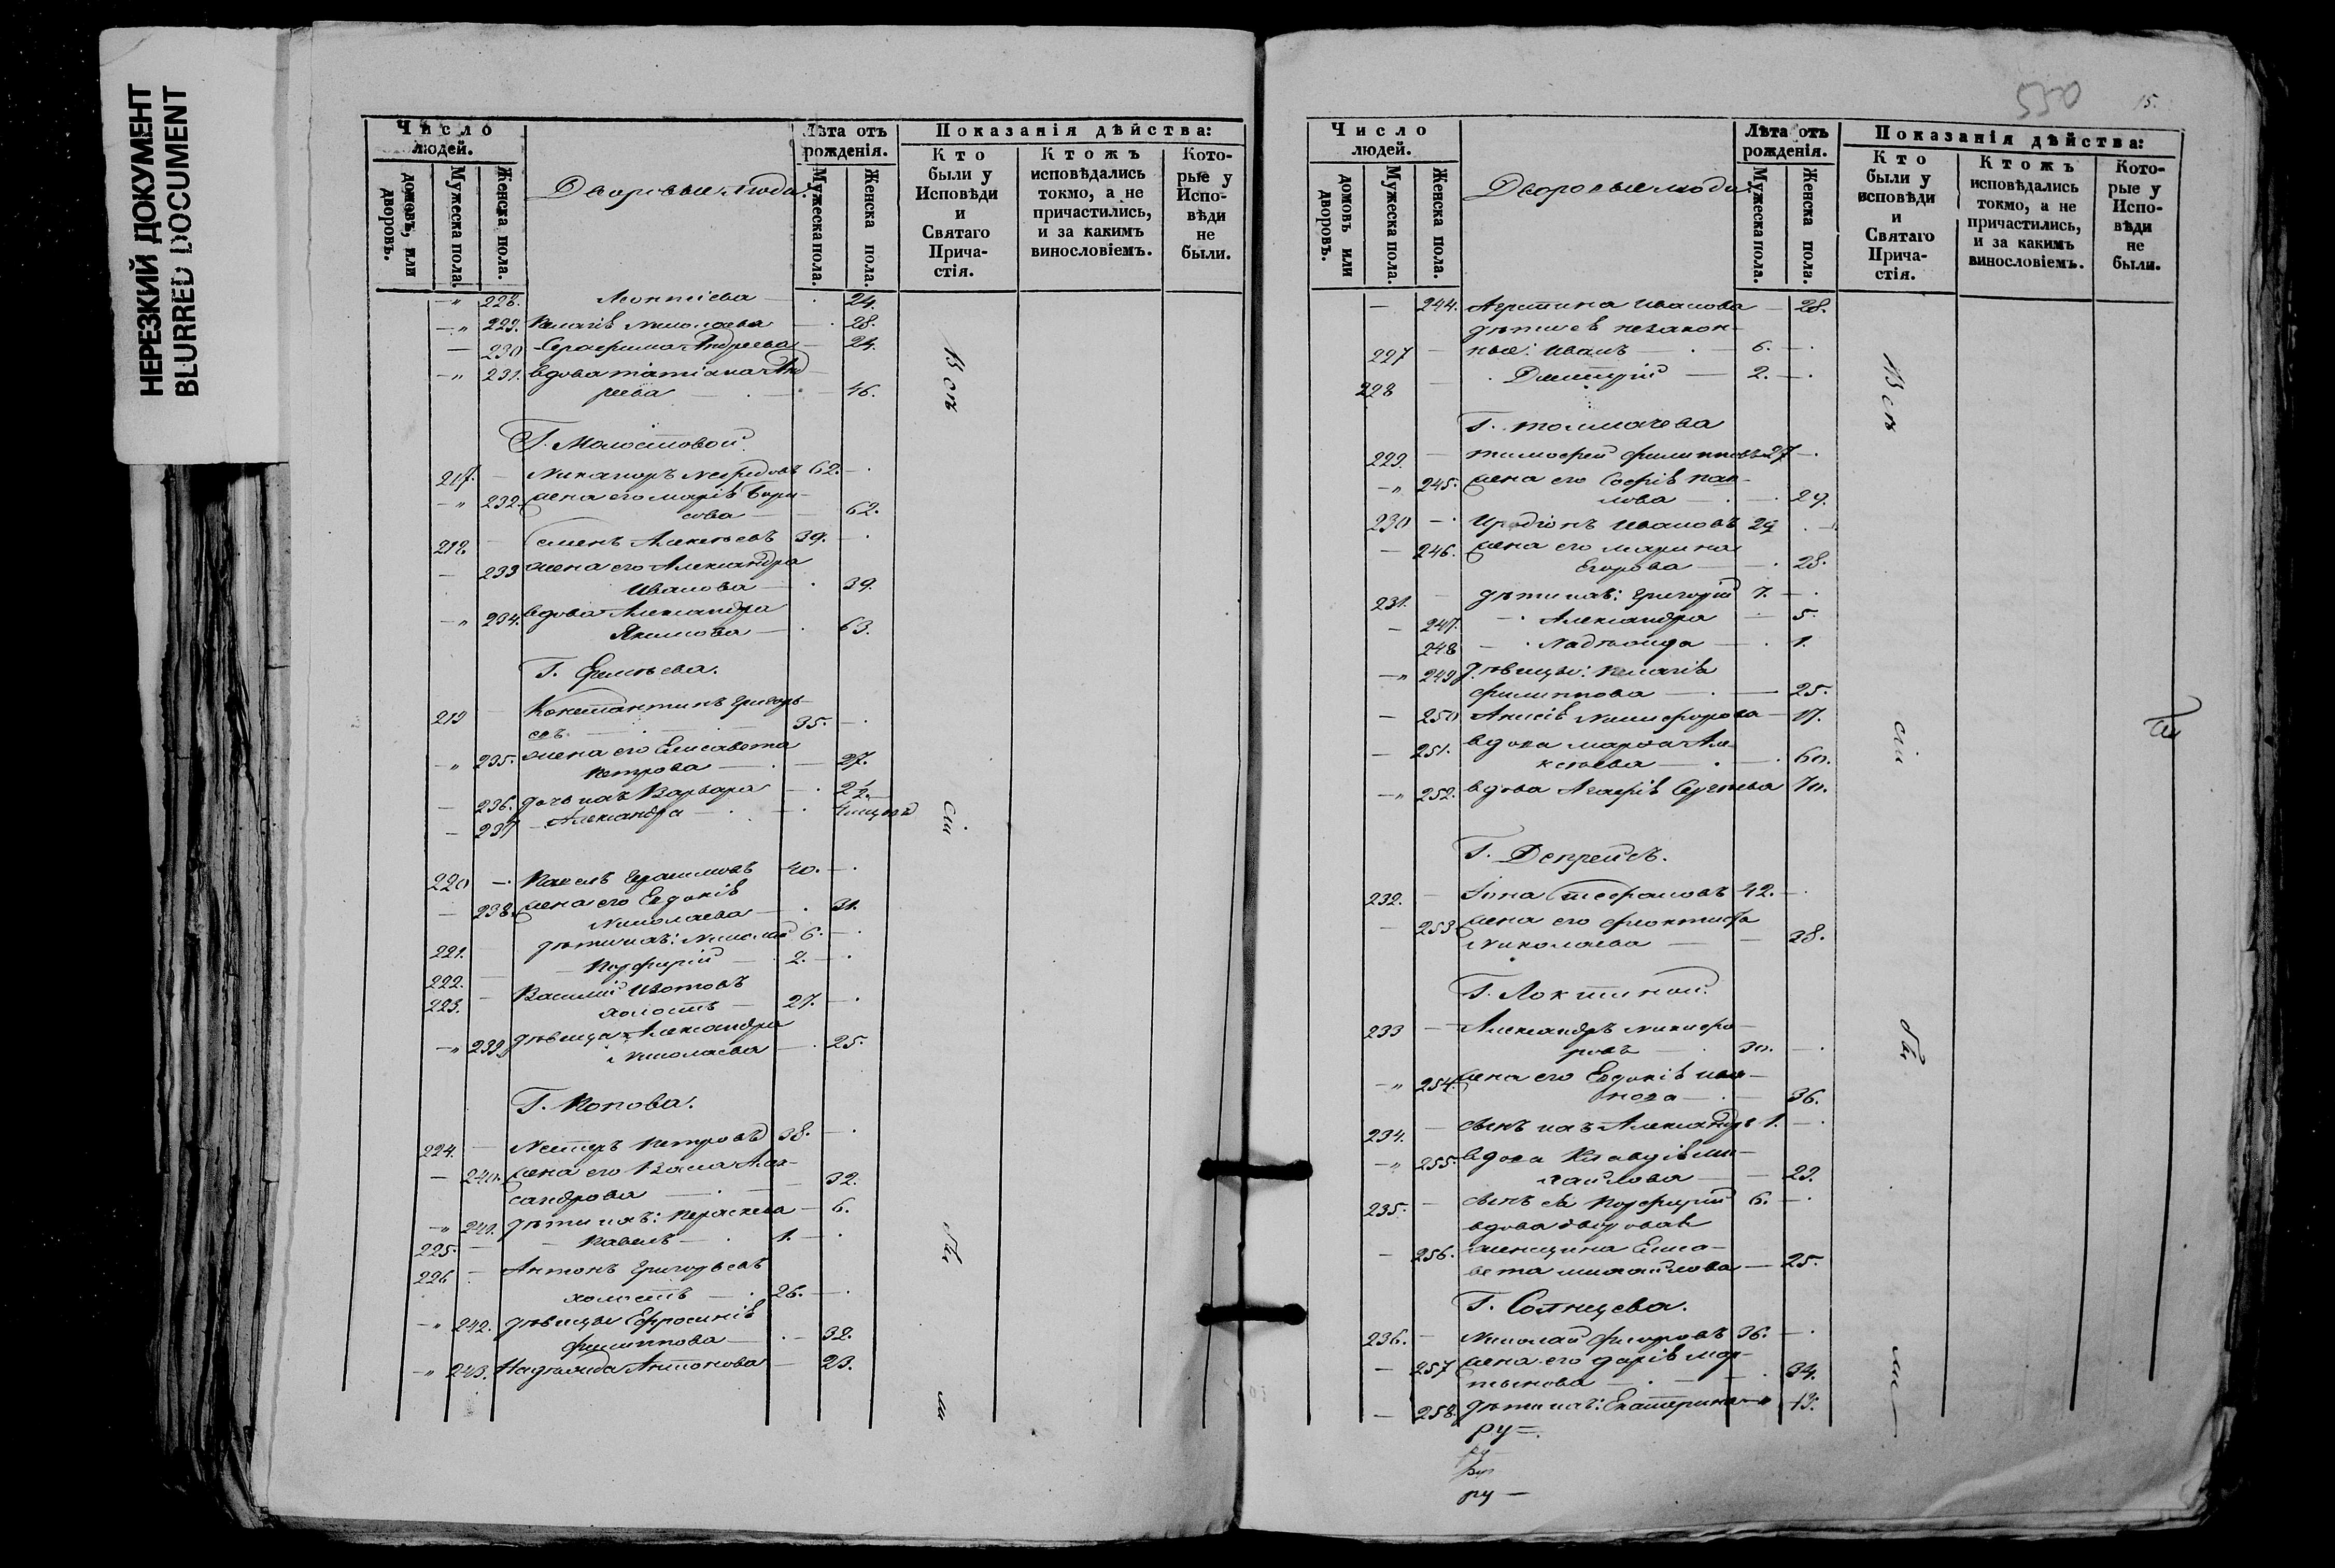 НЕРЕЗКИЙ ДОКУМЕНТ
BLURRED DOCUMENT
Число людей.
домовъ, или дворовъ.
Мужеска пола.
Женска пола.
Дворовые люди.
Лѣта отъ рожденія.
Мужеска пола.
Женска пола.
Показанія дѣйства:
Кто были у Исповѣди и Святаго Прича-стія.
Ктожъ исповѣдались токмо, а не причастились, и за какимъ винословіемъ.
Кото-рые у Испо-вѣди не были.
228. Леонтіева 24.
229. Пелагія Николаева 28.
230 Серафима Андреева 24.
231. вдова татіана Анд
реева 46.
Г. Молостовой.
217. Никаноръ 62.
232. жена его марія Бори-
сова 62.
218. Семенъ Алексѣевъ 39.
233 жена его Александра
Иванова 39.
234. вдова Александра
Якимова 63.
Г.
219 Константинъ Григорь-
евъ 35.
235. жена его Елисавета
Петрова 27.
236. дочь ихъ Варвара
237 Александра
220 Павелъ Герасимовъ 40.
238. жена его Евдокія
Николаева 31.
221. дѣти ихъ: Николай 6.
222. Порфирій 2.
223. Василій Изотовъ
холостъ 27.
239. дѣвица Александра
Николаева 25.
Г. Попова.
224. Нестеръ Петровъ 38.
240. жена его Васса Алек-
сандрова 32.
241. дѣти ихъ: Параскева 6.
225. Павелъ 1.
226 Антонъ Григорьевъ
холостъ 26.
242. дѣвицы Ефросинія
филиппова 32.
243. Надежда Антонова 23.
Всѣ
сіи
бы
ли
550
15.
Число людей.
домовъ или дворовъ.
Мужеска пола.
Женска пола.
Дворовые люди.
Лѣта отъ рожденія.
Мужеска пола.
Женска пола.
Показанія дѣйства:
Кто были у исповѣди и Святаго Прича-стія.
Ктожъ исповѣдались токмо, а не причастились, и за какимъ винословіемъ.
Кото-рые у Испо-вѣди не были.
244. Иванова 28.
дѣти ея незакон-
227 ные: Иванъ 6.
228 Димитрій 2.
Г. толмачева
229. тимофей филипповъ 27
245. жена его Софія пав-
лова 29.
230 Иродіонъ Ивановъ 29
246. жена его марина
Егорова 28.
231. дѣти ихъ: Григорій 7.
247. Александра 5.
248 Надежда 1.
249 дѣвицы: Пелагія
филиппова 25.
250 Анисія Никифорова 17.
251. вдова марѳа Але-
ксѣева 60.
252. вдова Агафія Сергѣева 70.
Г. Депрейсъ.
232. Іона Стефановъ 42.
253 жена его
Николаева 38.
Г. Локтиной.
233 Александръ никифо-
ровъ 30.
254. жена его Евдокія ива-
нова 36.
234. сынъ ихъ Александръ 1.
255. вдова Клавдія ми-
хайлова 23.
235. сынъ ея Порфирій 6.
вдова дворовая
256. женщина Елиса-
вета михайлова 25.
Г. Солнцева.
236. Николай федоровъ 36.
257 жена его дарія мар-
тынова 34.
258. дѣти ихъ: Екатерина 13.
Всѣ
сіи
бы
ли
ру
ру